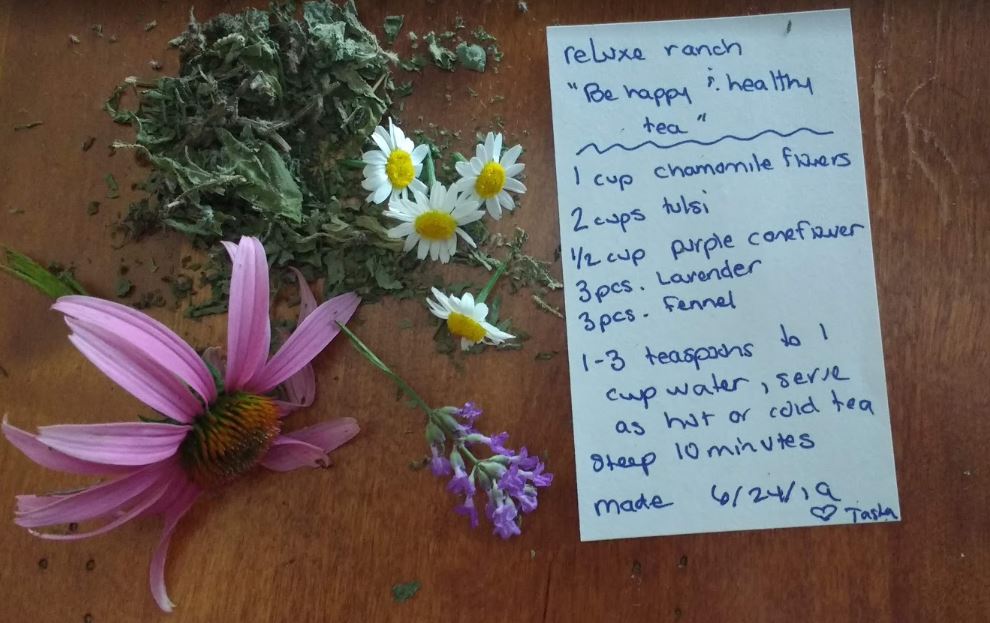 reluxe ranch
"Be happy & healthy
tea"
1 cup chamomile flowers
2 cups tulsi
1/2 cup purple coneflower
3 pcs. Lavender
3 pcs. fennel
1-3 teaspoons to 1
cup water, serve
as hot or cold tea
Steep 10 minutes
made 6/24/19
♡ Tasha